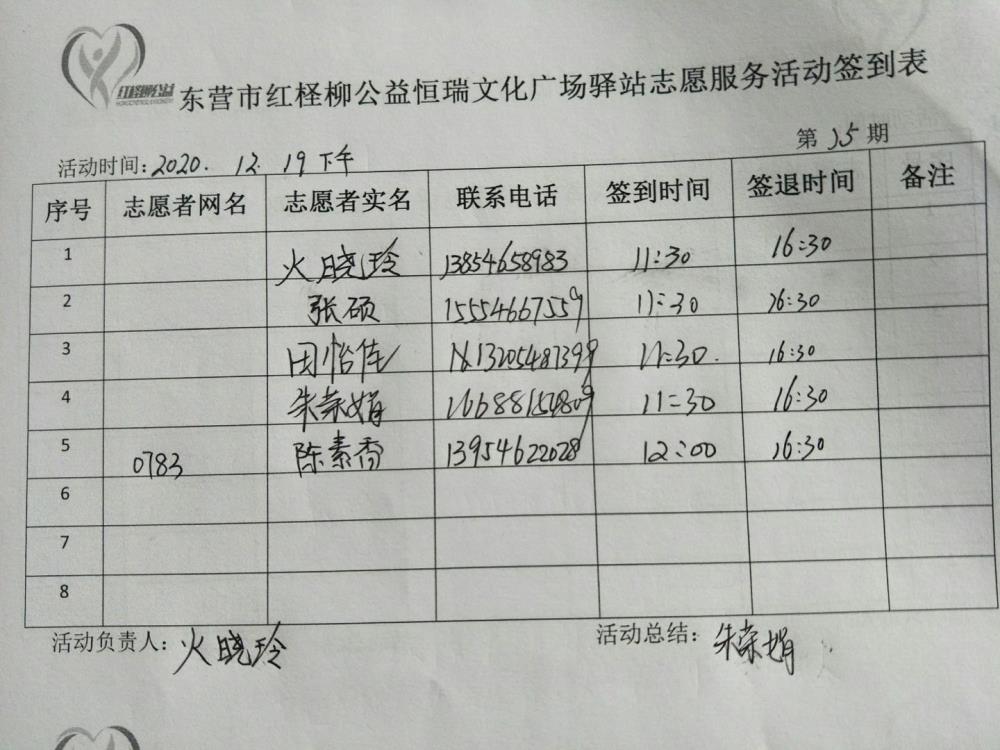 红柽柳公益
东营市红柽柳公益恒瑞文化广场驿站志愿服务活动签到表
活动时间:2020. 12. 19下午 第 15 期
序号 志愿者网名 志愿者实名 联系电话 签到时间 签退时间 备注
1 火晓玲 13854658983 11:30 16:30
2 张硕 15554667559 11:30 16:30
3 田怡佳 13205487399 11:30. 16:30
4 朱荣娟 16688154809 11:30 16:30
5 0783 陈素香 13954622028 12:00 16:30
6
7
8
活动负责人:火晓玲 活动总结:朱荣娟